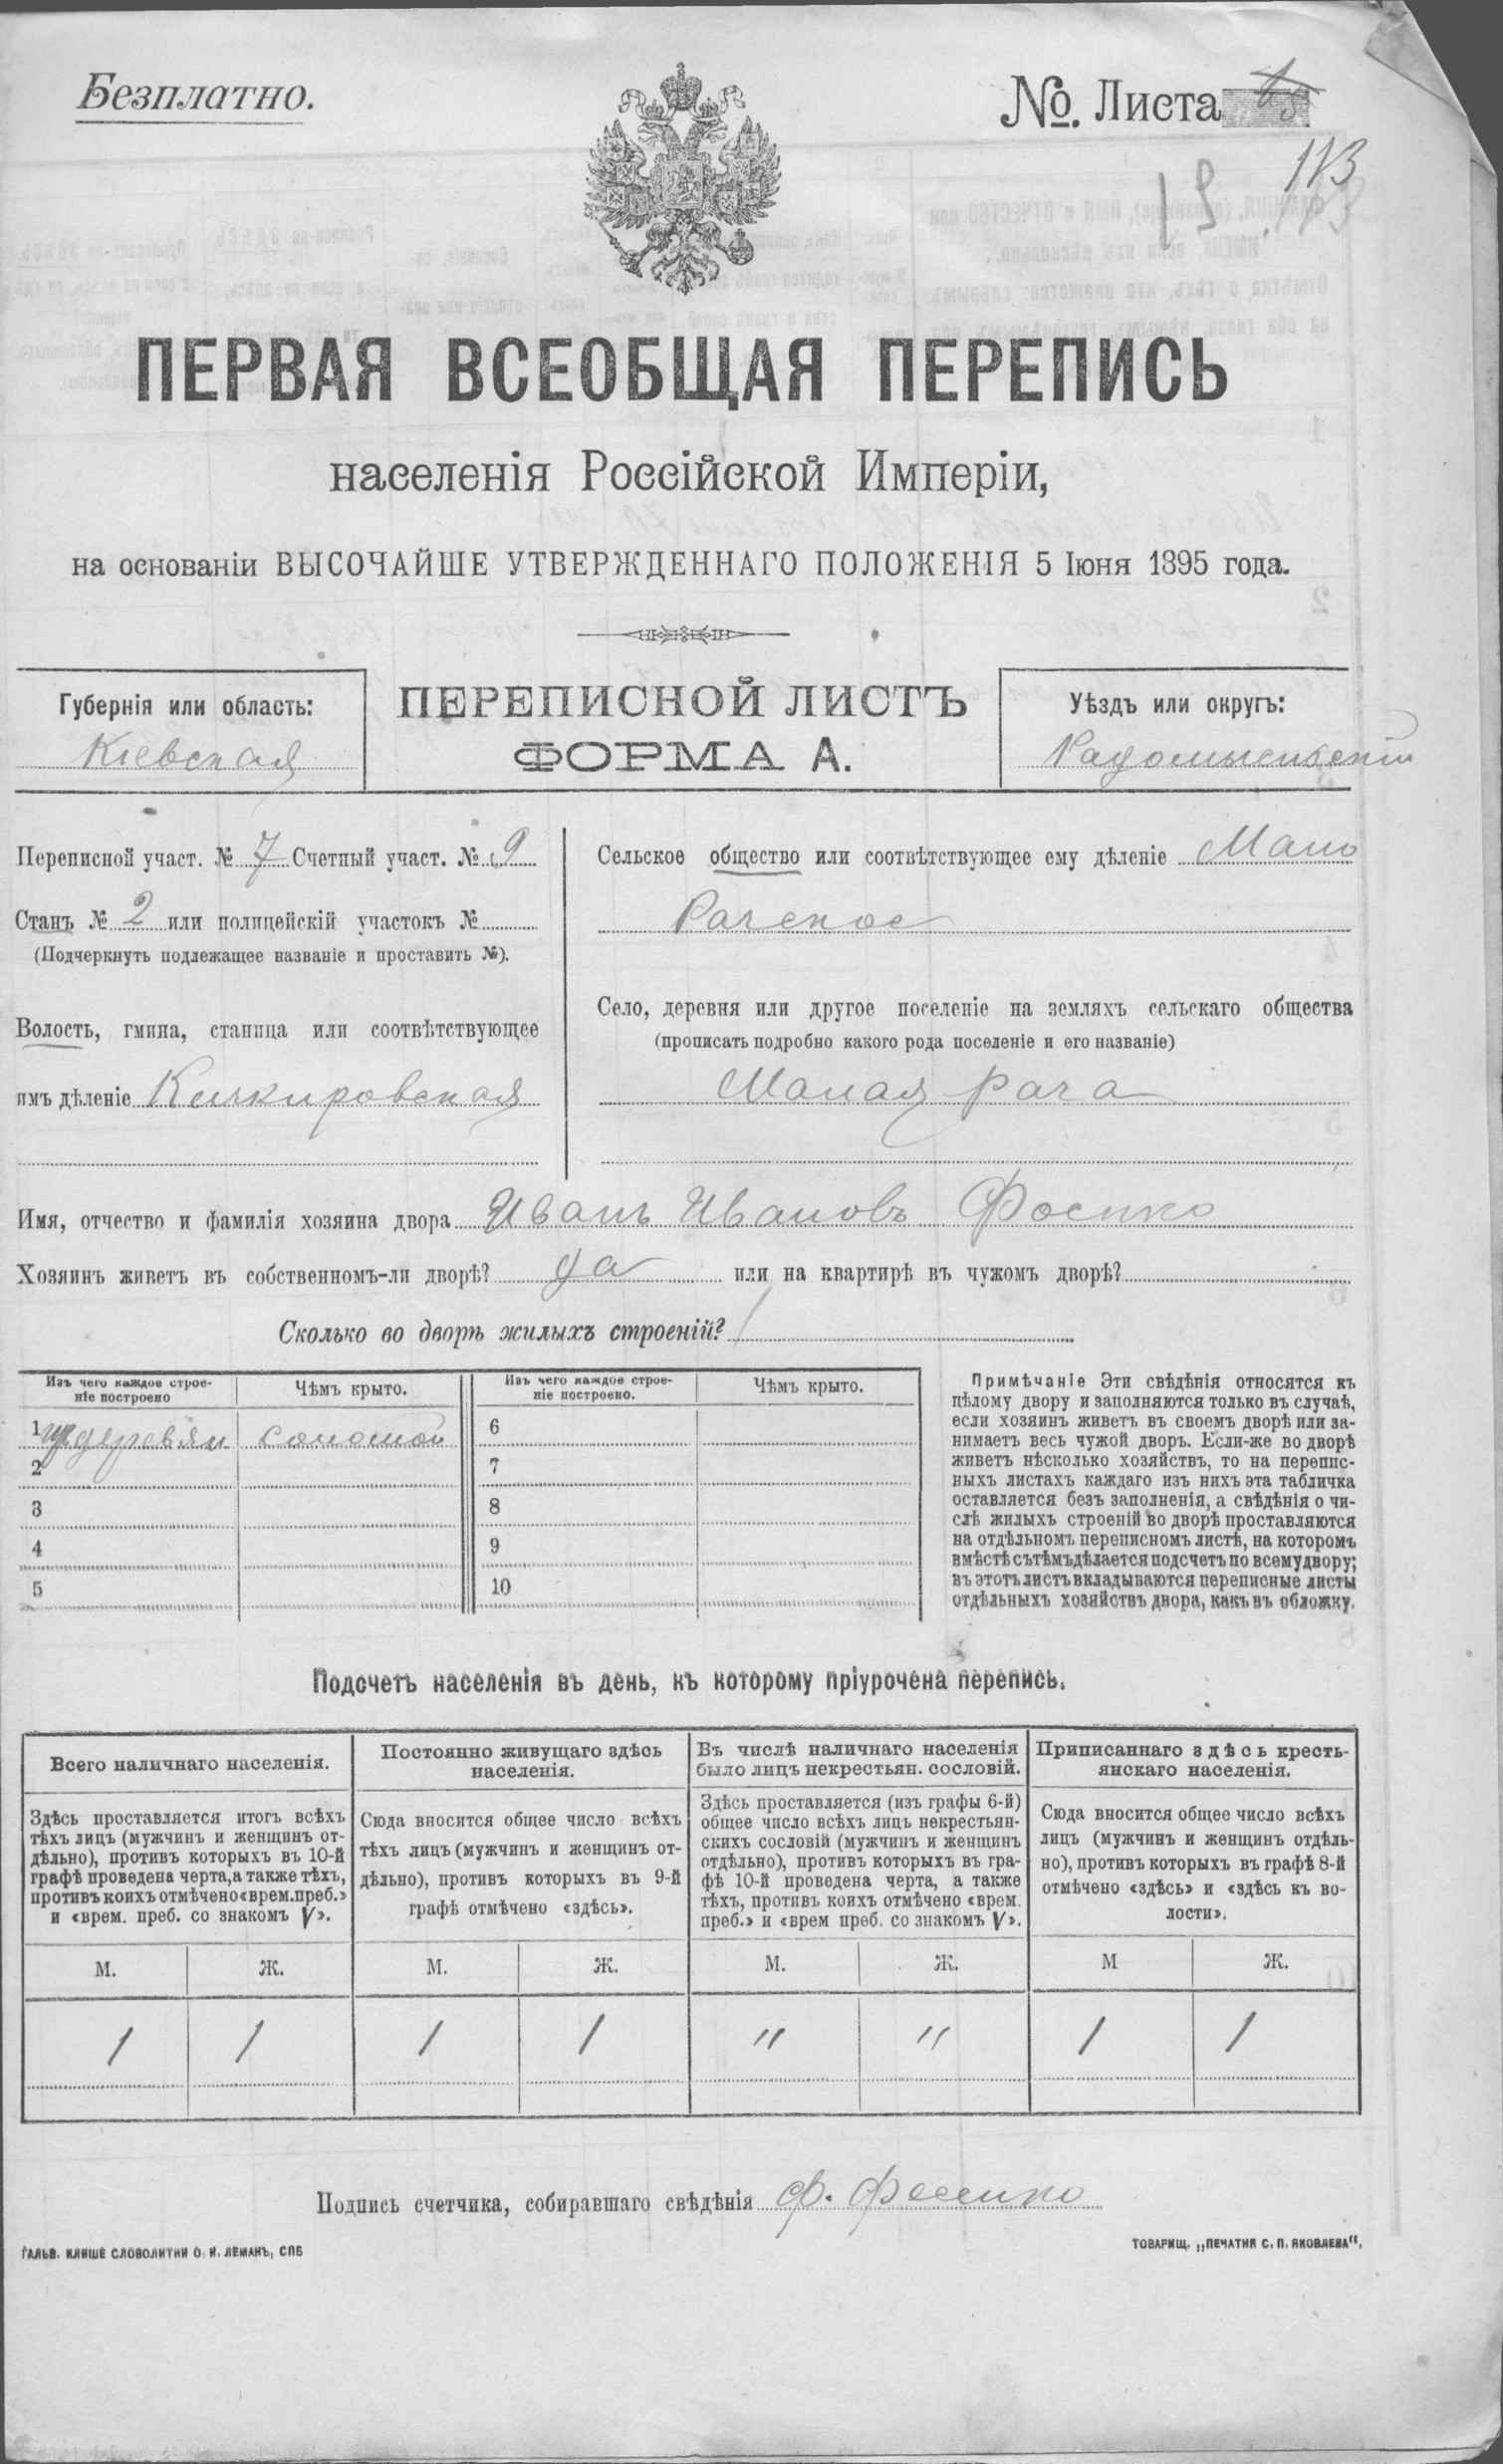 Безплатно.
№. Листа
19.
113
ПЕРВАЯ ВСЕОБЩАЯ ПЕРЕПИСЬ
населенія Россійской Имперіи,
на основаніи ВЫСОЧАЙШЕ УТВЕРЖДЕННАГО ПОЛОЖЕНІЯ 5 Іюня 1895 года.
Губернія или область:
Кіевская
ПЕРЕПИСНОЙ ЛИСТЪ
ФОРМА А.
Уѣздъ или округъ:
Радомысльскій
Переписной участ. № 7 Счетный участ. № 9
Станъ № 2 или полицейскій участокъ №
(Подчеркнуть подлежащее названіе и проставить №).
Волость, гмина, станица или соотвѣтствующее
имъ дѣленіе Кичкировская
Сельское общество или соотвѣтствующее ему дѣленіе Мало
Рачское
Село, деревня или другое поселеніе на земляхъ сельскаго общества
(прописать подробно какого рода поселеніе и его названіе)
Малая Рача
Имя, отчество и фамилія хозяина двора Иванъ Ивановъ
Хозяинъ живетъ въ собственномъ-ли дворѣ? да или на квартирѣ въ чужомъ дворѣ?
Сколько во дворѣ жилыхъ строеній? 1
Изъ чего каждое строе-
ніе построено
Чѣмъ крыто.
Изъ чего каждое строе-
ніе построено.
Чѣмъ крыто.
1 деревян соломой 6
2 7
3 8
4 9
5 10
Примѣчаніе Эти свѣдѣнія относятся къ
цѣлому двору и заполняются только въ случаѣ,
если хозяинъ живетъ въ своемъ дворѣ или за-
нимаетъ весь чужой дворъ. Если-же во дворѣ
живетъ нѣсколько хозяйствъ, то на перепис-
ныхъ листахъ каждаго изъ нихъ эта табличка
оставляется безъ заполненія, а свѣдѣнія о чи-
слѣ жилыхъ строеній во дворѣ проставляются
на отдѣльномъ переписномъ листѣ, на которомъ
вмѣстѣ съ тѣмъ дѣлается подсчетъ по всему двору;
въ этотъ листъ вкладываются переписные листы
отдѣльныхъ хозяйствъ двора, какъ въ обложку.
Подсчетъ населенія въ день, къ которому пріурочена перепись.
Всего наличнаго населенія.
Здѣсь проставляется итогъ всѣхъ
тѣхъ лицъ (мужчинъ и женщинъ от-
дѣльно), противъ которыхъ въ 10-й
графѣ проведена черта, а также тѣхъ,
противъ коихъ отмѣчено «врем. преб.»
и «врем. преб. со знакомъ V».
М. Ж.
1 1
Постоянно живущаго здѣсь
населенія.
Сюда вносится общее число всѣхъ
тѣхъ лицъ (мужчинъ и женщинъ от-
дѣльно), противъ которыхъ въ 9-й
графѣ отмѣчено «здѣсь».
М. Ж.
1 1
Въ числѣ наличнаго населенія
было лицъ некрестьян. сословій.
Здѣсь проставляется (изъ графы 6-й)
общее число всѣхъ лицъ некрестьян-
скихъ сословій (мужчинъ и женщинъ
отдѣльно), противъ которыхъ въ гра-
фѣ 10-й проведена черта, а также
тѣхъ, противъ коихъ отмѣчено «врем.
преб.» и «врем преб. со знакомъ V».
М. Ж.
" "
Приписаннаго здѣсь кресть-
янскаго населенія.
Сюда вносится общее число всѣхъ
лицъ (мужчинъ и женщинъ отдѣль-
но), противъ которыхъ въ графѣ 8-й
отмѣчено «здѣсь» и «здѣсь къ во-
лости».
М Ж.
1 1
Подпись счетчика, собиравшаго свѣдѣнія Ф.
ГАЛЬВ. КЛИШЕ СЛОВОЛИТНИ О. И. ЛЕМАНЪ, СПБ
ТОВАРИЩ. „ПЕЧАТНЯ С. П. ЯКОВЛЕВА“.